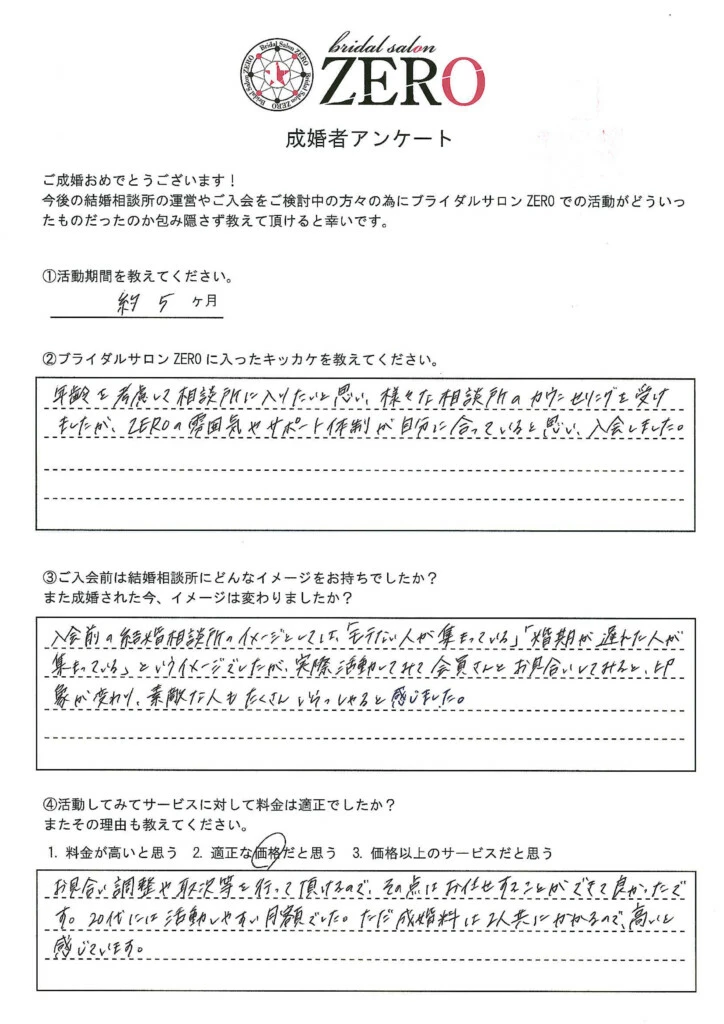 bridal salon
ZERO
Bridal Salon ZERO
Bridal Salon ZERO
Bridal Salon ZERO
Bridal Salon ZERO
成婚者アンケート
ご成婚おめでとうございます！
今後の結婚相談所の運営やご入会をご検討中の方々の為にブライダルサロン ZERO での活動がどういっ
たものだったのか包み隠さず教えて頂けると幸いです。
①活動期間を教えてください。
約 5 ヶ月
②ブライダルサロン ZERO に入ったキッカケを教えてください。
年齢を考慮して相談所に入りたいと思い、様々な相談所のカウンセリングを受け
ましたが、ZEROの雰囲気やサポート体制が自分に合っていると思い、入会しました。
③ご入会前は結婚相談所にどんなイメージをお持ちでしたか？
また成婚された今、イメージは変わりましたか？
入会前の結婚相談所のイメージとしては、「モテない人が集まっている」「婚期が遅れた人が
集まっている」というイメージでしたが、実際活動してみて会員さんとお見合いしてみると、印
象が変わり、素敵な人もたくさんいらっしゃると感じました。
④活動してみてサービスに対して料金は適正でしたか？
またその理由も教えてください。
1. 料金が高いと思う 2. 適正な価格だと思う 3. 価格以上のサービスだと思う
お見合い調整や取次等を行って頂けるので、その点はお任せすることができて良かったで
す。20代には活動しやすい月額でした。ただ成婚料は2人共にかかるので、高いと
感じています。